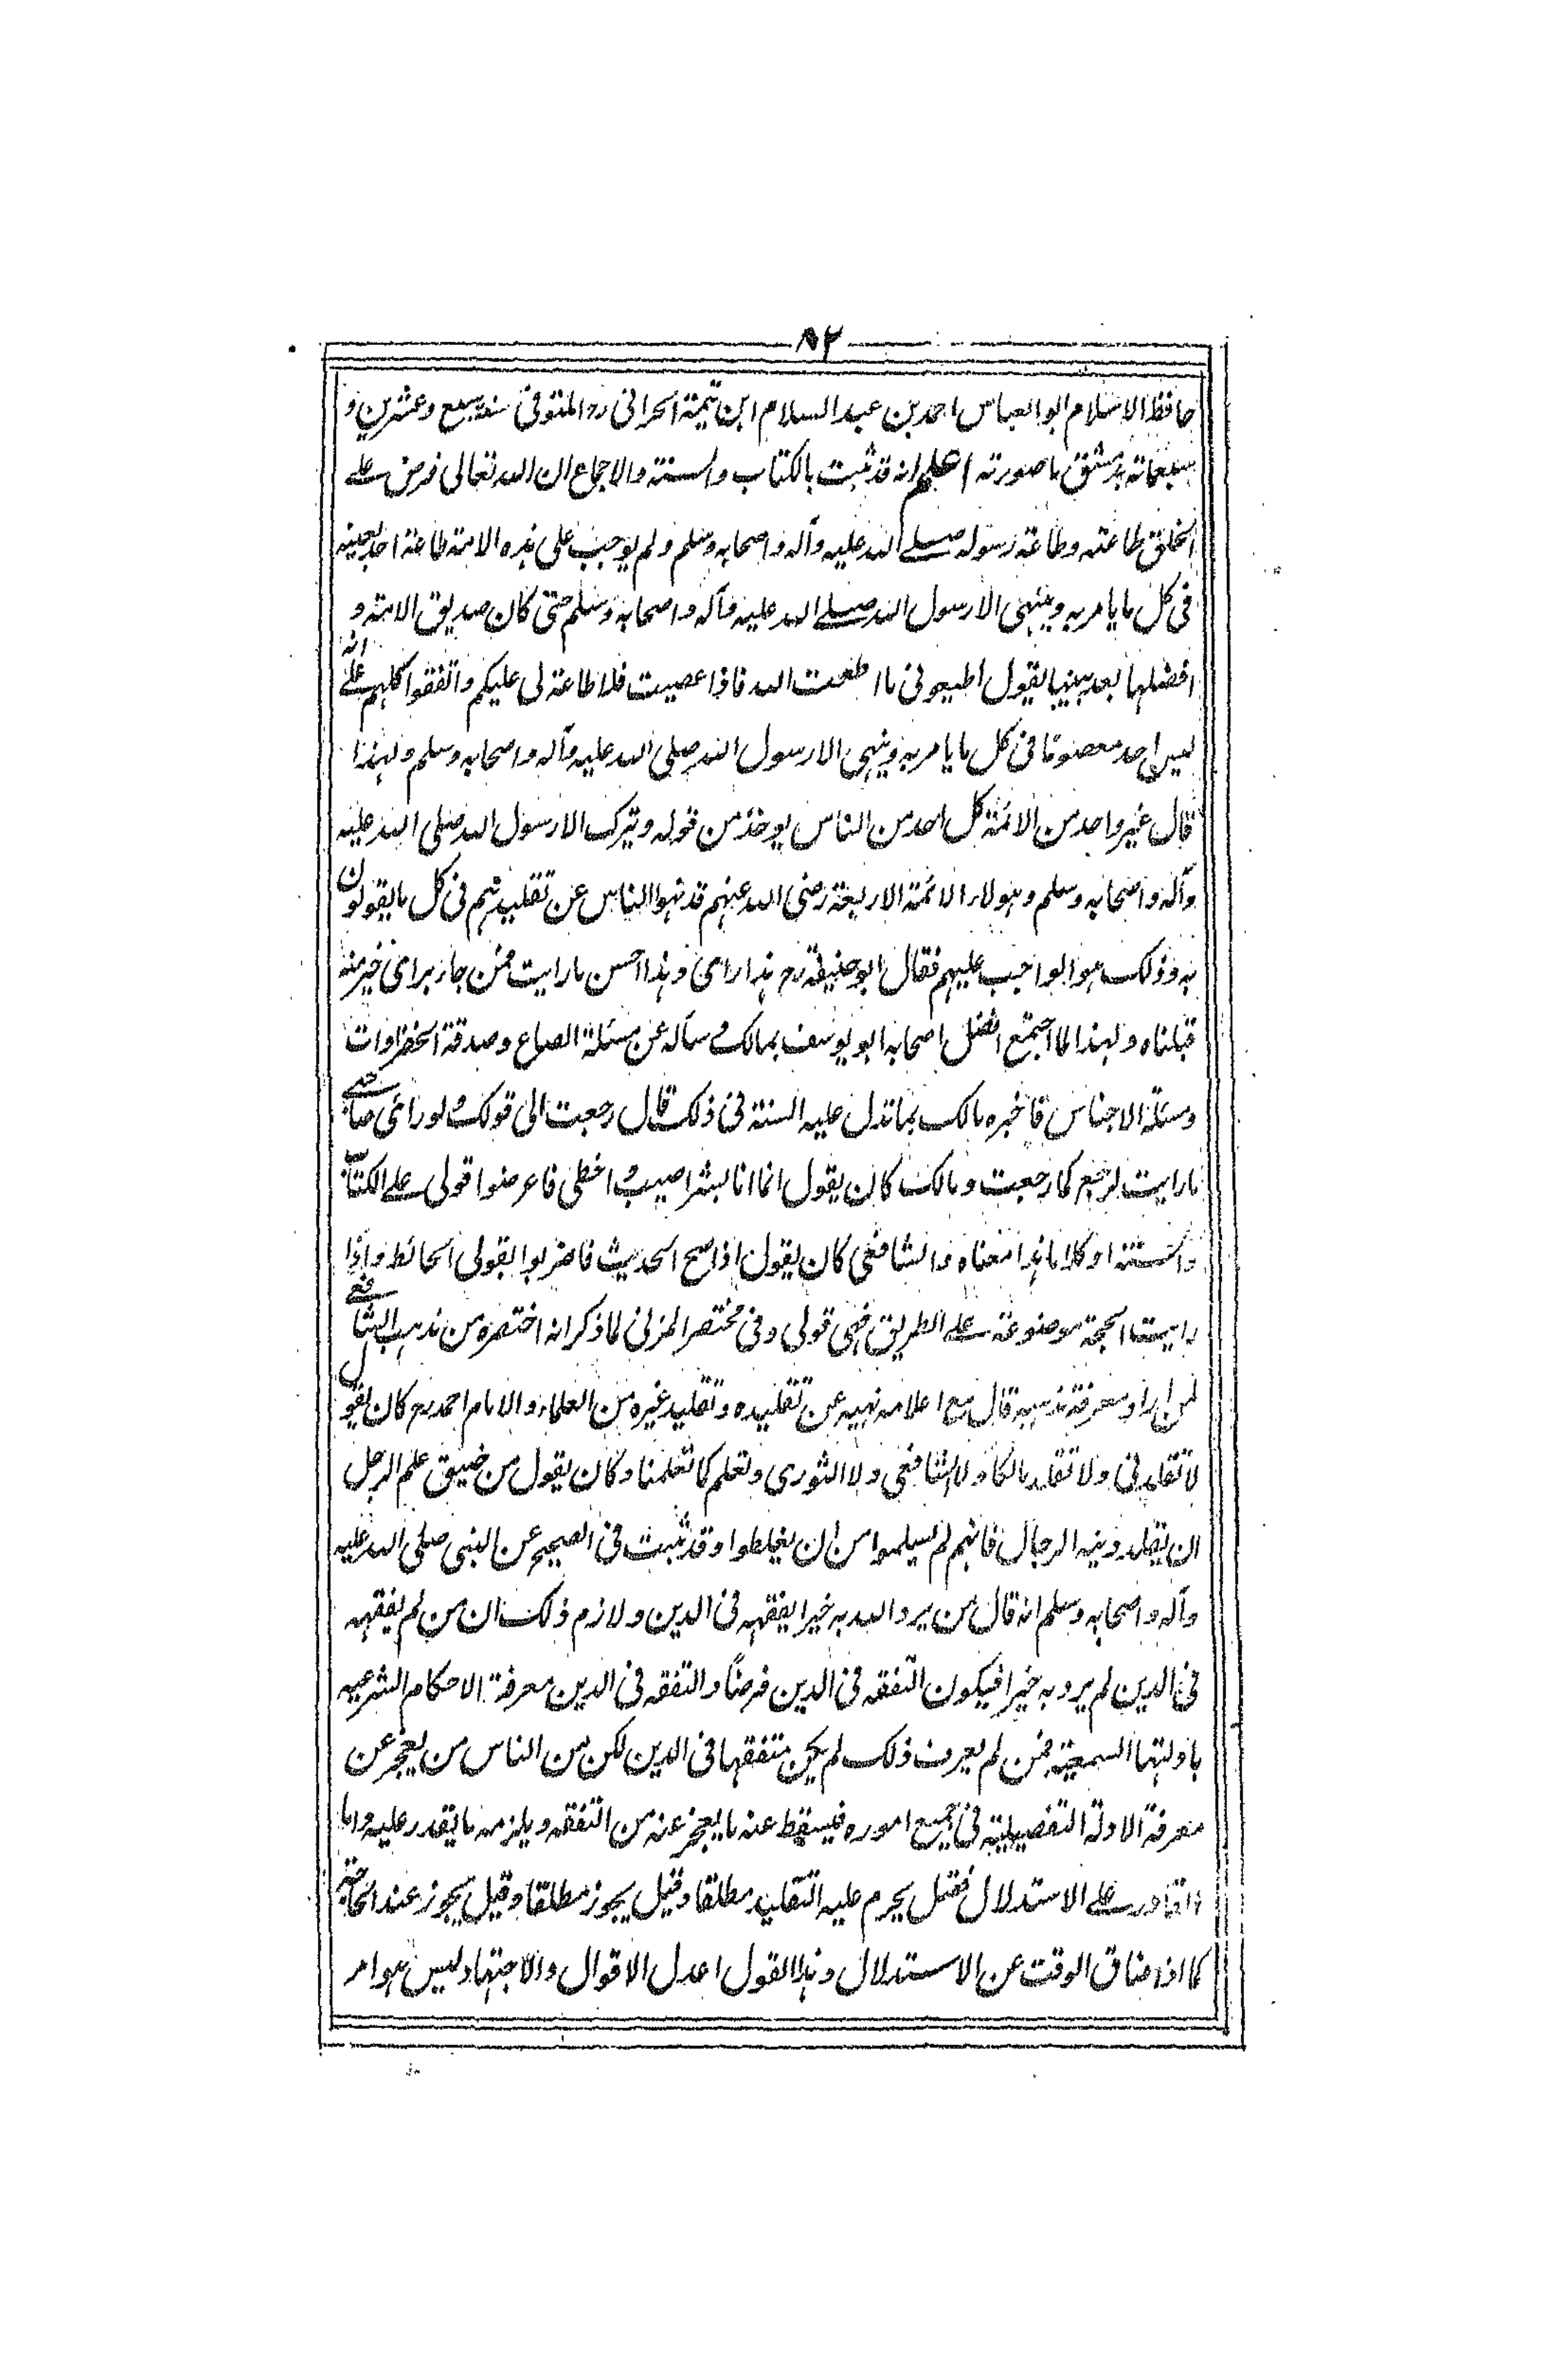 ٨٢
حافظ الاسلام ابو العباس احمد بن عبد السلام ابن تيمية الحرانى رہ المتوفى سنة سبع وعشرين و
سبعمائة بدمشق ما صورته اعلم انه قد ثبت بالكتاب والسنة والاجماع ان الله تعالى فرض على
الخلق طاعته وطاعة رسوله صلى الله عليه وآله واصحابه وسلم ولم يوجب على هذه الامة طاعة احد بعينه
فى كل ما يامر به وينهى الا رسول الله صلى الله عليه وآله واصحابه وسلم حتى كان صديق الامة و
افضلها بعد نبيها يقول اطيعونى ما اطعت الله فاذا عصيت فلا طاعة لى عليكم واتفقوا كلهم على انه
ليس احد معصوما فى كل ما يامر به وينهى الا رسول الله صلى الله عليه وآله واصحابه وسلم ولهذا
قال غير واحد من الائمة كل احد من الناس يوخذ من قوله ويترك الا رسول الله صلى الله عليه
وآله واصحابه وسلم وهولاء الائمة الاربعة رضى الله عنهم قد نهوا الناس عن تقليدهم فى كل ما يقولون
به وذلك هو الواجب عليهم فقال ابو حنيفة رح هذا رائ وهذا احسن ما رايت فمن جاء براى خير منه
قبلناه ولهذا لما اجتمع افضل اصحابه ابو يوسف بمالك وساله عن مسئلة الصاع وصدقة الخضراوات
ومسئلة الاجناس فاخبره مالك بما تدل عليه السنة فى ذلك قال رجعت الى قولك ولو راى صاحبى
ما رايت لرجع كما رجعت ومالك كان يقول انما انا بشر اصيب واخطى فاعرضوا قولى على الكتاب
والسنة او كلاما هذا معناه والشافعى كان يقول اذا صح الحديث فاضربوا بقولى الحائط واذا
رايت الحجة موضوعة على الطريق فهى قولى وفى مختصر المزنى لما ذكر انه اختصره من مذهب الشافعى
لمن اراد معرفة مذهبه قال مع اعلامه نهيه عن تقليده وتقليد غيره من العلماء والامام احمد رح كان يقول
لا تقلدنى ولا تقلد مالكا ولا الشافعى ولا الثورى وتعلم كما تعلمنا وكان يقول من ضيق علم الرجل
ان يقلد دينه الرجال فانهم لم يسلموا من ان يغلطوا وقد ثبت فى الصحيح عن النبى صلى الله عليه
وآله واصحابه وسلم انه قال من يرد الله به خيرا يفقهه فى الدين ولازم ذلك ان من لم يفقهه
فى الدين لم يرد به خيرا فيكون التفقه فى الدين فرضًا والتفقه فى الدين معرفة الاحكام الشرعيه
بادلتها السمعية فمن لم يعرف ذلك لم يكن متفقها فى الدين لكن من الناس من يعجز عن
معرفة الادلة التفصيلية فى جميع اموره فيسقط عنه ما يعجز عنه من التفقه ويلزمه ما يقدر عليه واما
القادر على الاستدلال فقيل يحرم عليه التقليد مطلقا وقيل يجوز مطلقا وقيل يجوز عند الحاجة
كما اذا ضاق الوقت عن الاستدلال وهذا القول اعدل الاقوال والاجتهاد ليس هو امر